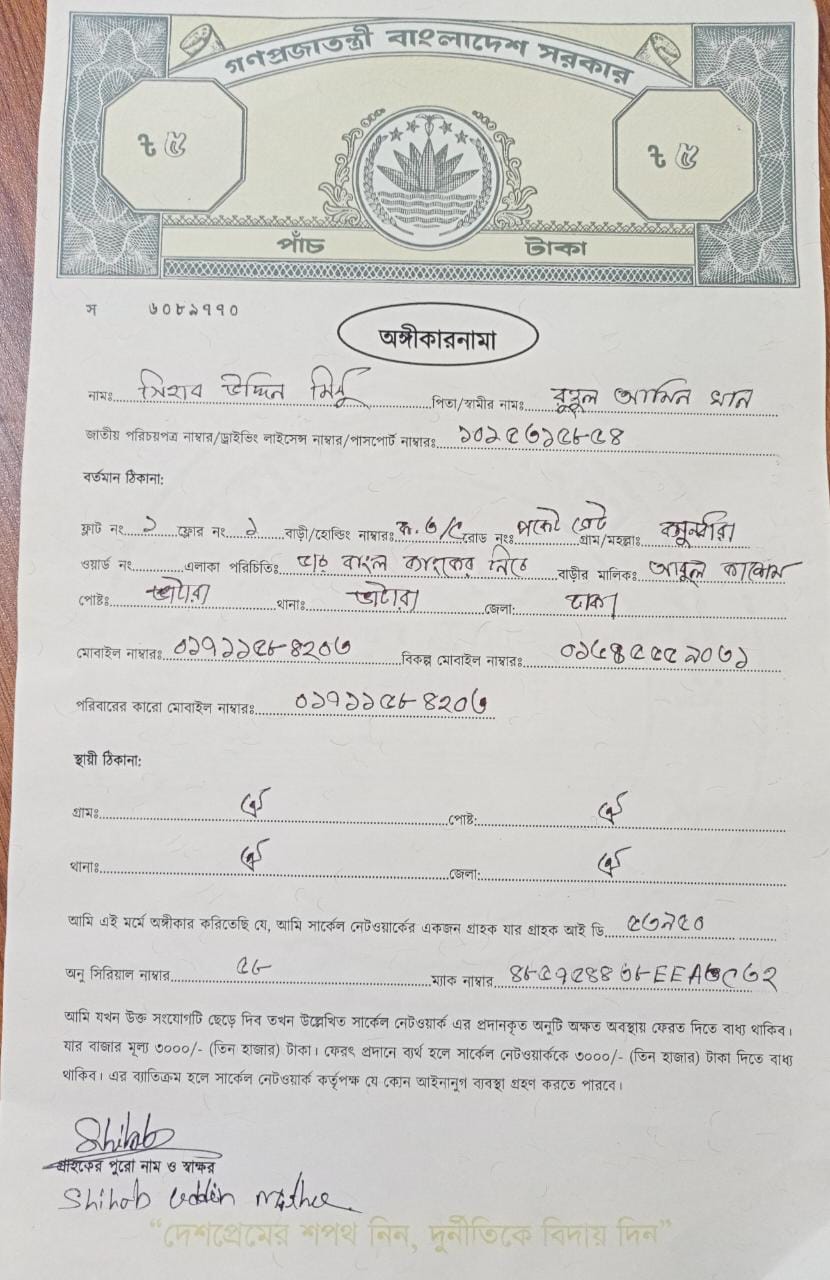 গণপ্রজাতন্ত্রী বাংলাদেশ সরকার
৳ ৫ ৳ ৫
পাঁচ টাকা
স ৬০৮৯৭৭০
অঙ্গীকারনামা
নামঃ সিহাব উদ্দিন মির্ধু পিতা/স্বামীর নামঃ রুহুল আমিন খান
জাতীয় পরিচয়পত্র নাম্বার/ড্রাইভিং লাইসেন্স নাম্বার/পাসপোর্ট নাম্বারঃ ১০১৫৩১৫৮৫৪
বর্তমান ঠিকানা:
ফ্লাট নং ১ ফ্লোর নং ১ বাড়ী/হোল্ডিং নাম্বারঃ ক. ৩/৫ রোড নং পকেট গেট গ্রাম/মহল্লাঃ বসুন্ধরা
ওয়ার্ড নং এলাকা পরিচিতিঃ বাড়ীর মালিকঃ আবুল কাশেম
পোষ্টঃ ভাটারা থানাঃ ভাটারা জেলা: ঢাকা
মোবাইল নাম্বারঃ ০১৭১১৫৮৪২০৩ বিকল্প মোবাইল নাম্বারঃ ০১৫৪৫৫৫৯০৩১
পরিবারের কারো মোবাইল নাম্বারঃ ০১৭১১৫৮৪২০৩
স্থায়ী ঠিকানা:
গ্রামঃ ঐ পোষ্ট: ঐ
থানাঃ ঐ জেলা: ঐ
আমি এই মর্মে অঙ্গীকার করিতেছি যে, আমি সার্কেল নেটওয়ার্কের একজন গ্রাহক যার গ্রাহক আই ডি ৫৩৯৫০
অনু সিরিয়াল নাম্বার ৫৮ ম্যাক নাম্বার
আমি যখন উক্ত সংযোগটি ছেড়ে দিব তখন উল্লেখিত সার্কেল নেটওয়ার্ক এর প্রদানকৃত অনুটি অক্ষত অবস্থায় ফেরত দিতে বাধ্য থাকিব।
যার বাজার মূল্য ৩০০০/- (তিন হাজার) টাকা। ফেরৎ প্রদানে ব্যর্থ হলে সার্কেল নেটওয়ার্ককে ৩০০০/- (তিন হাজার) টাকা দিতে বাধ্য
থাকিব। এর ব্যাতিক্রম হলে সার্কেল নেটওয়ার্ক কর্তৃপক্ষ যে কোন আইনানুগ ব্যবস্থা গ্রহণ করতে পারবে।
Shihab
গ্রাহকের পুরো নাম ও স্বাক্ষর
Shihab Uddin
“দেশপ্রেমের শপথ নিন, দুর্নীতিকে বিদায় দিন”